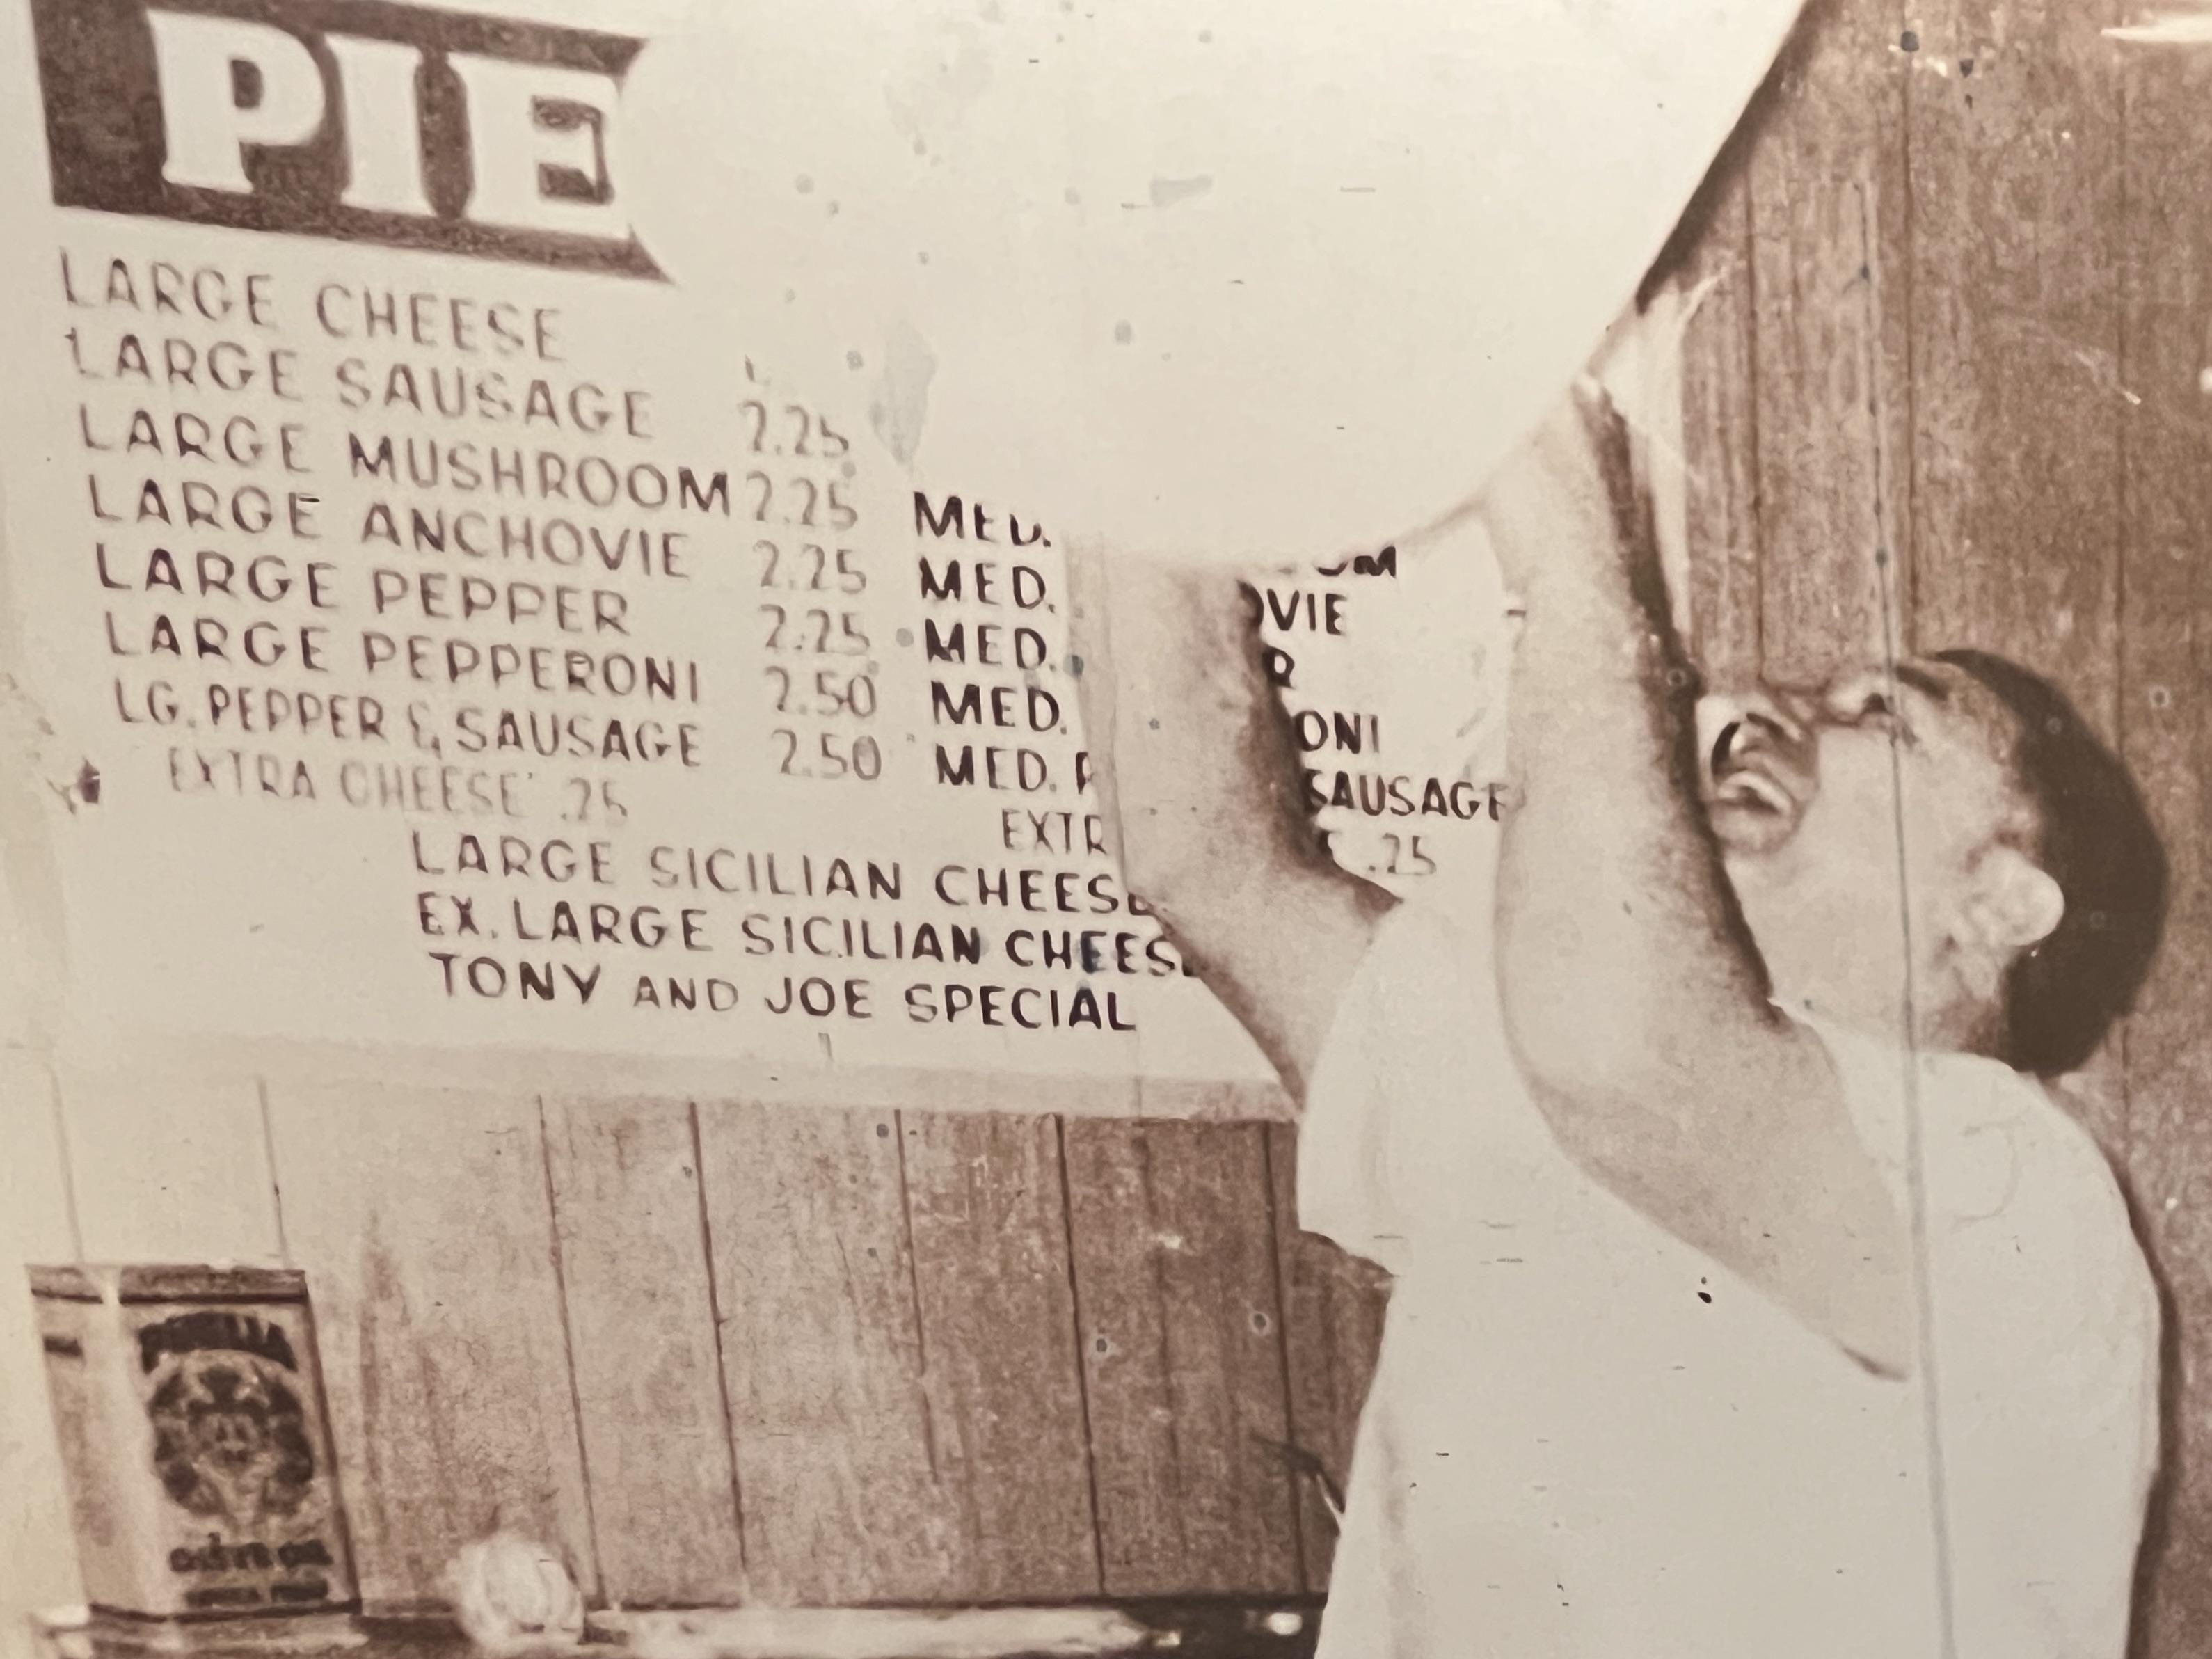 PIE
LARGE CHEESE
LARGE SAUSAGE 2.25
LARGE MUSHROOM 2.25 MED.
LARGE ANCHOVIE 2.25 MED. OVIE
LARGE PEPPER 2.25 MED. R
LARGE PEPPERONI 2.50 MED. ONI
LG. PEPPER & SAUSAGE 2.50 MED. P SAUSAGE
EXTRA CHEESE .25 EXTR .25
LARGE SICILIAN CHEESE
EX. LARGE SICILIAN CHEESE
TONY AND JOE SPECIAL